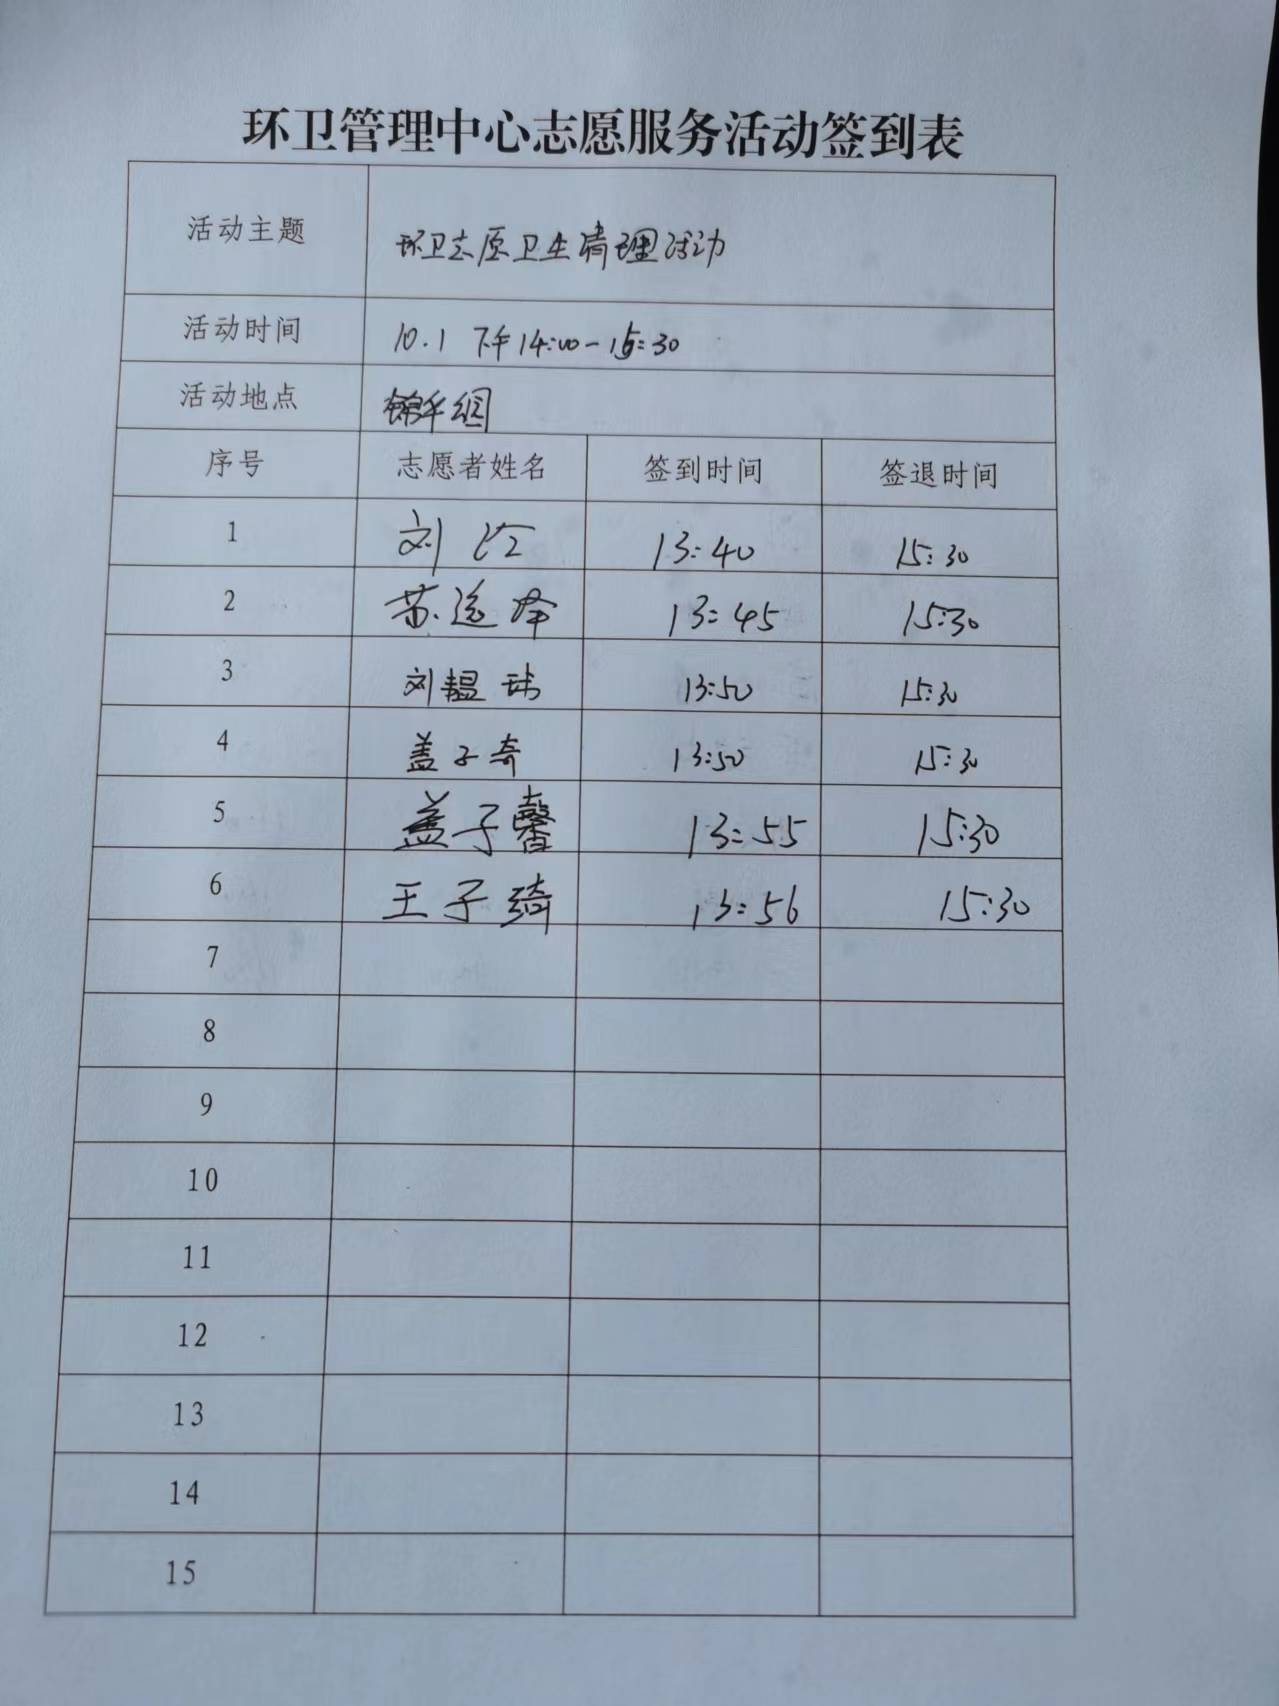 环卫管理中心志愿服务活动签到表
活动主题 环卫志原卫生清理活动
活动时间 10.1 下午14:00-15:30
活动地点 锦绣园
序号 志愿者姓名 签到时间 签退时间
1 刘 13:40 15:30
2 苏运泽 13:45 15:30
3 刘韫玮 13:50 15:30
4 盖子奇 13:50 15:30
5 盖子馨 13:55 15:30
6 王子琦 13:56 15:30
7
8
9
10
11
12
13
14
15